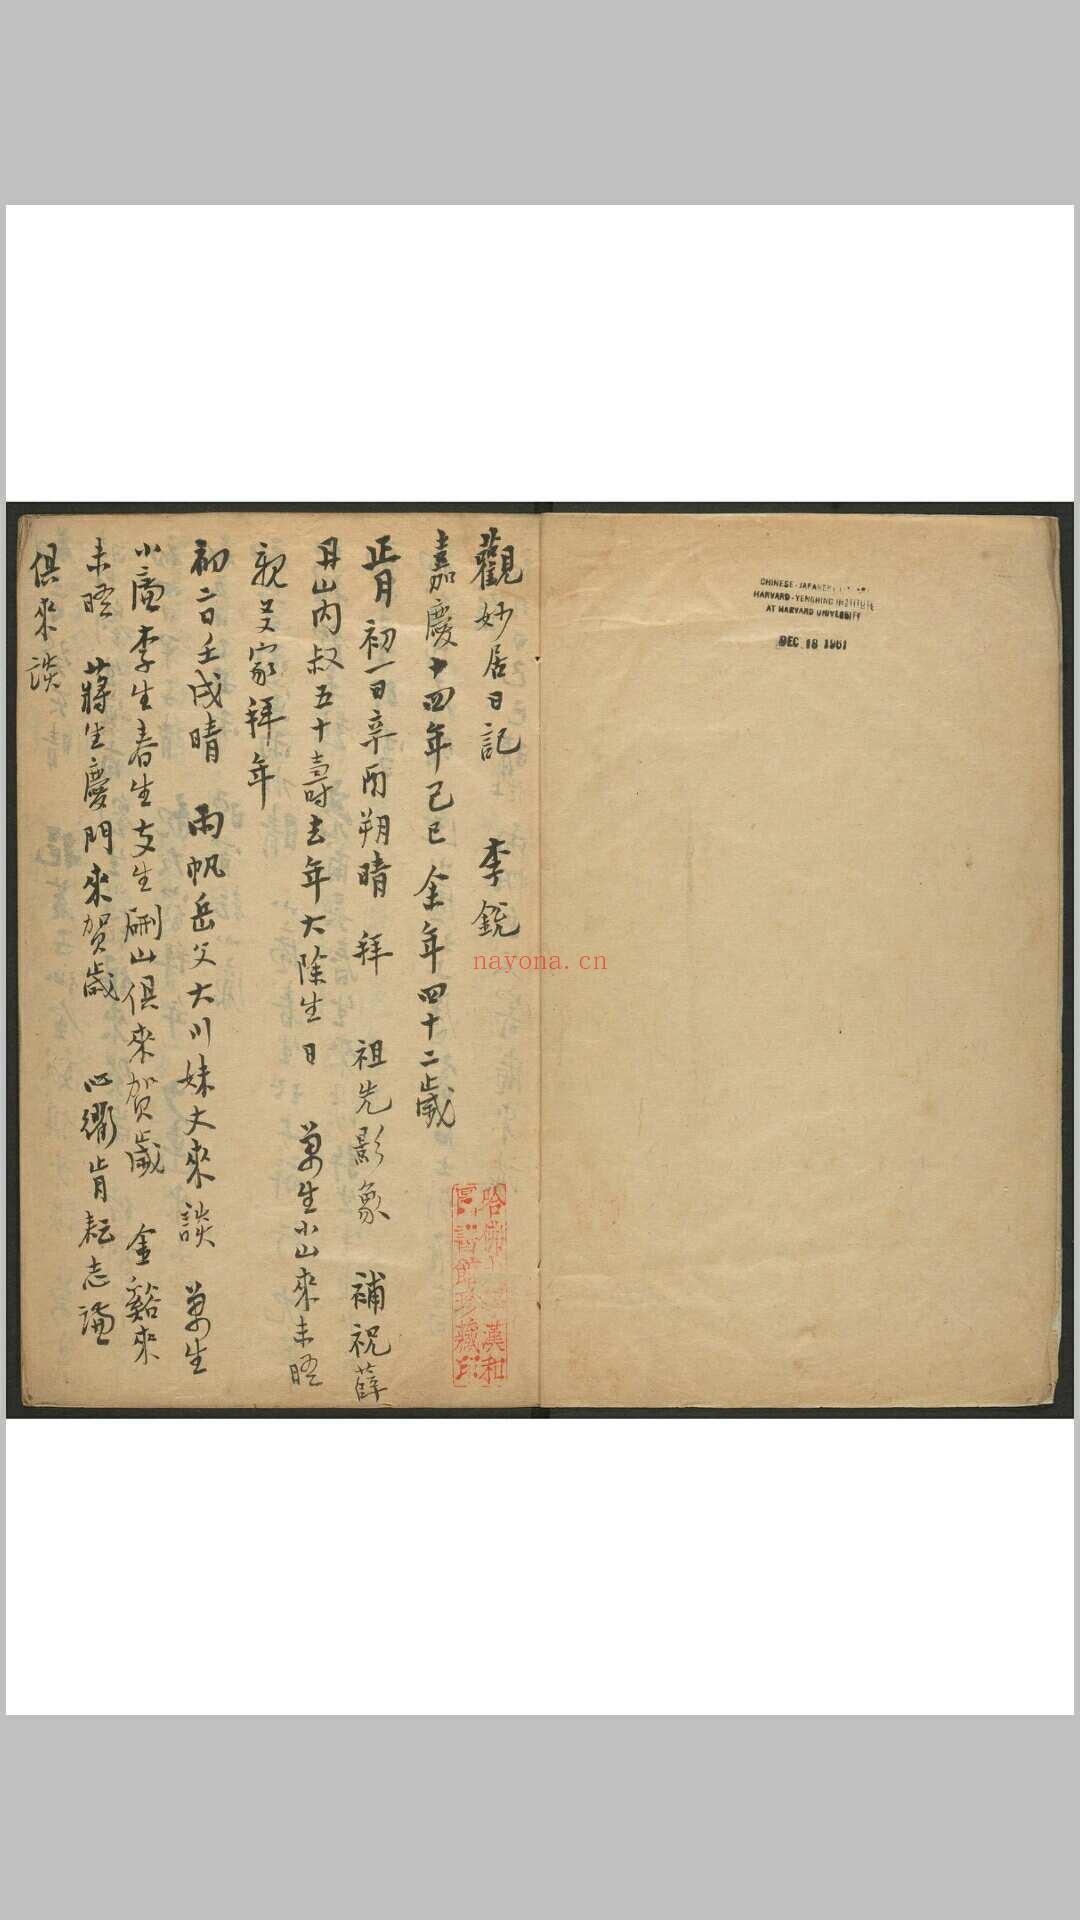 CHINESE-JAPANESE
HARVARD-YENCHING INSTITUTE
AT HARVARD UNIVERSITY
DEC 18 1961
觀妙居日記 李銳
嘉慶十四年己巳 余年四十二歲
正月初一日辛酉朔晴 拜 祖先影象 補祝薛
丹山内叔五十壽去年大除生日 萬生小山來未晤
親友家拜年
初二日壬戌晴 雨帆岳父大川妹丈來談 萬生
小廉李生春生支生副山俱來賀歲 金谿來
未晤 蔣生慶門來賀歲 心衢肯耘志謙
俱來談
哈佛大 漢和
圖書館珍藏印
nayona.cn